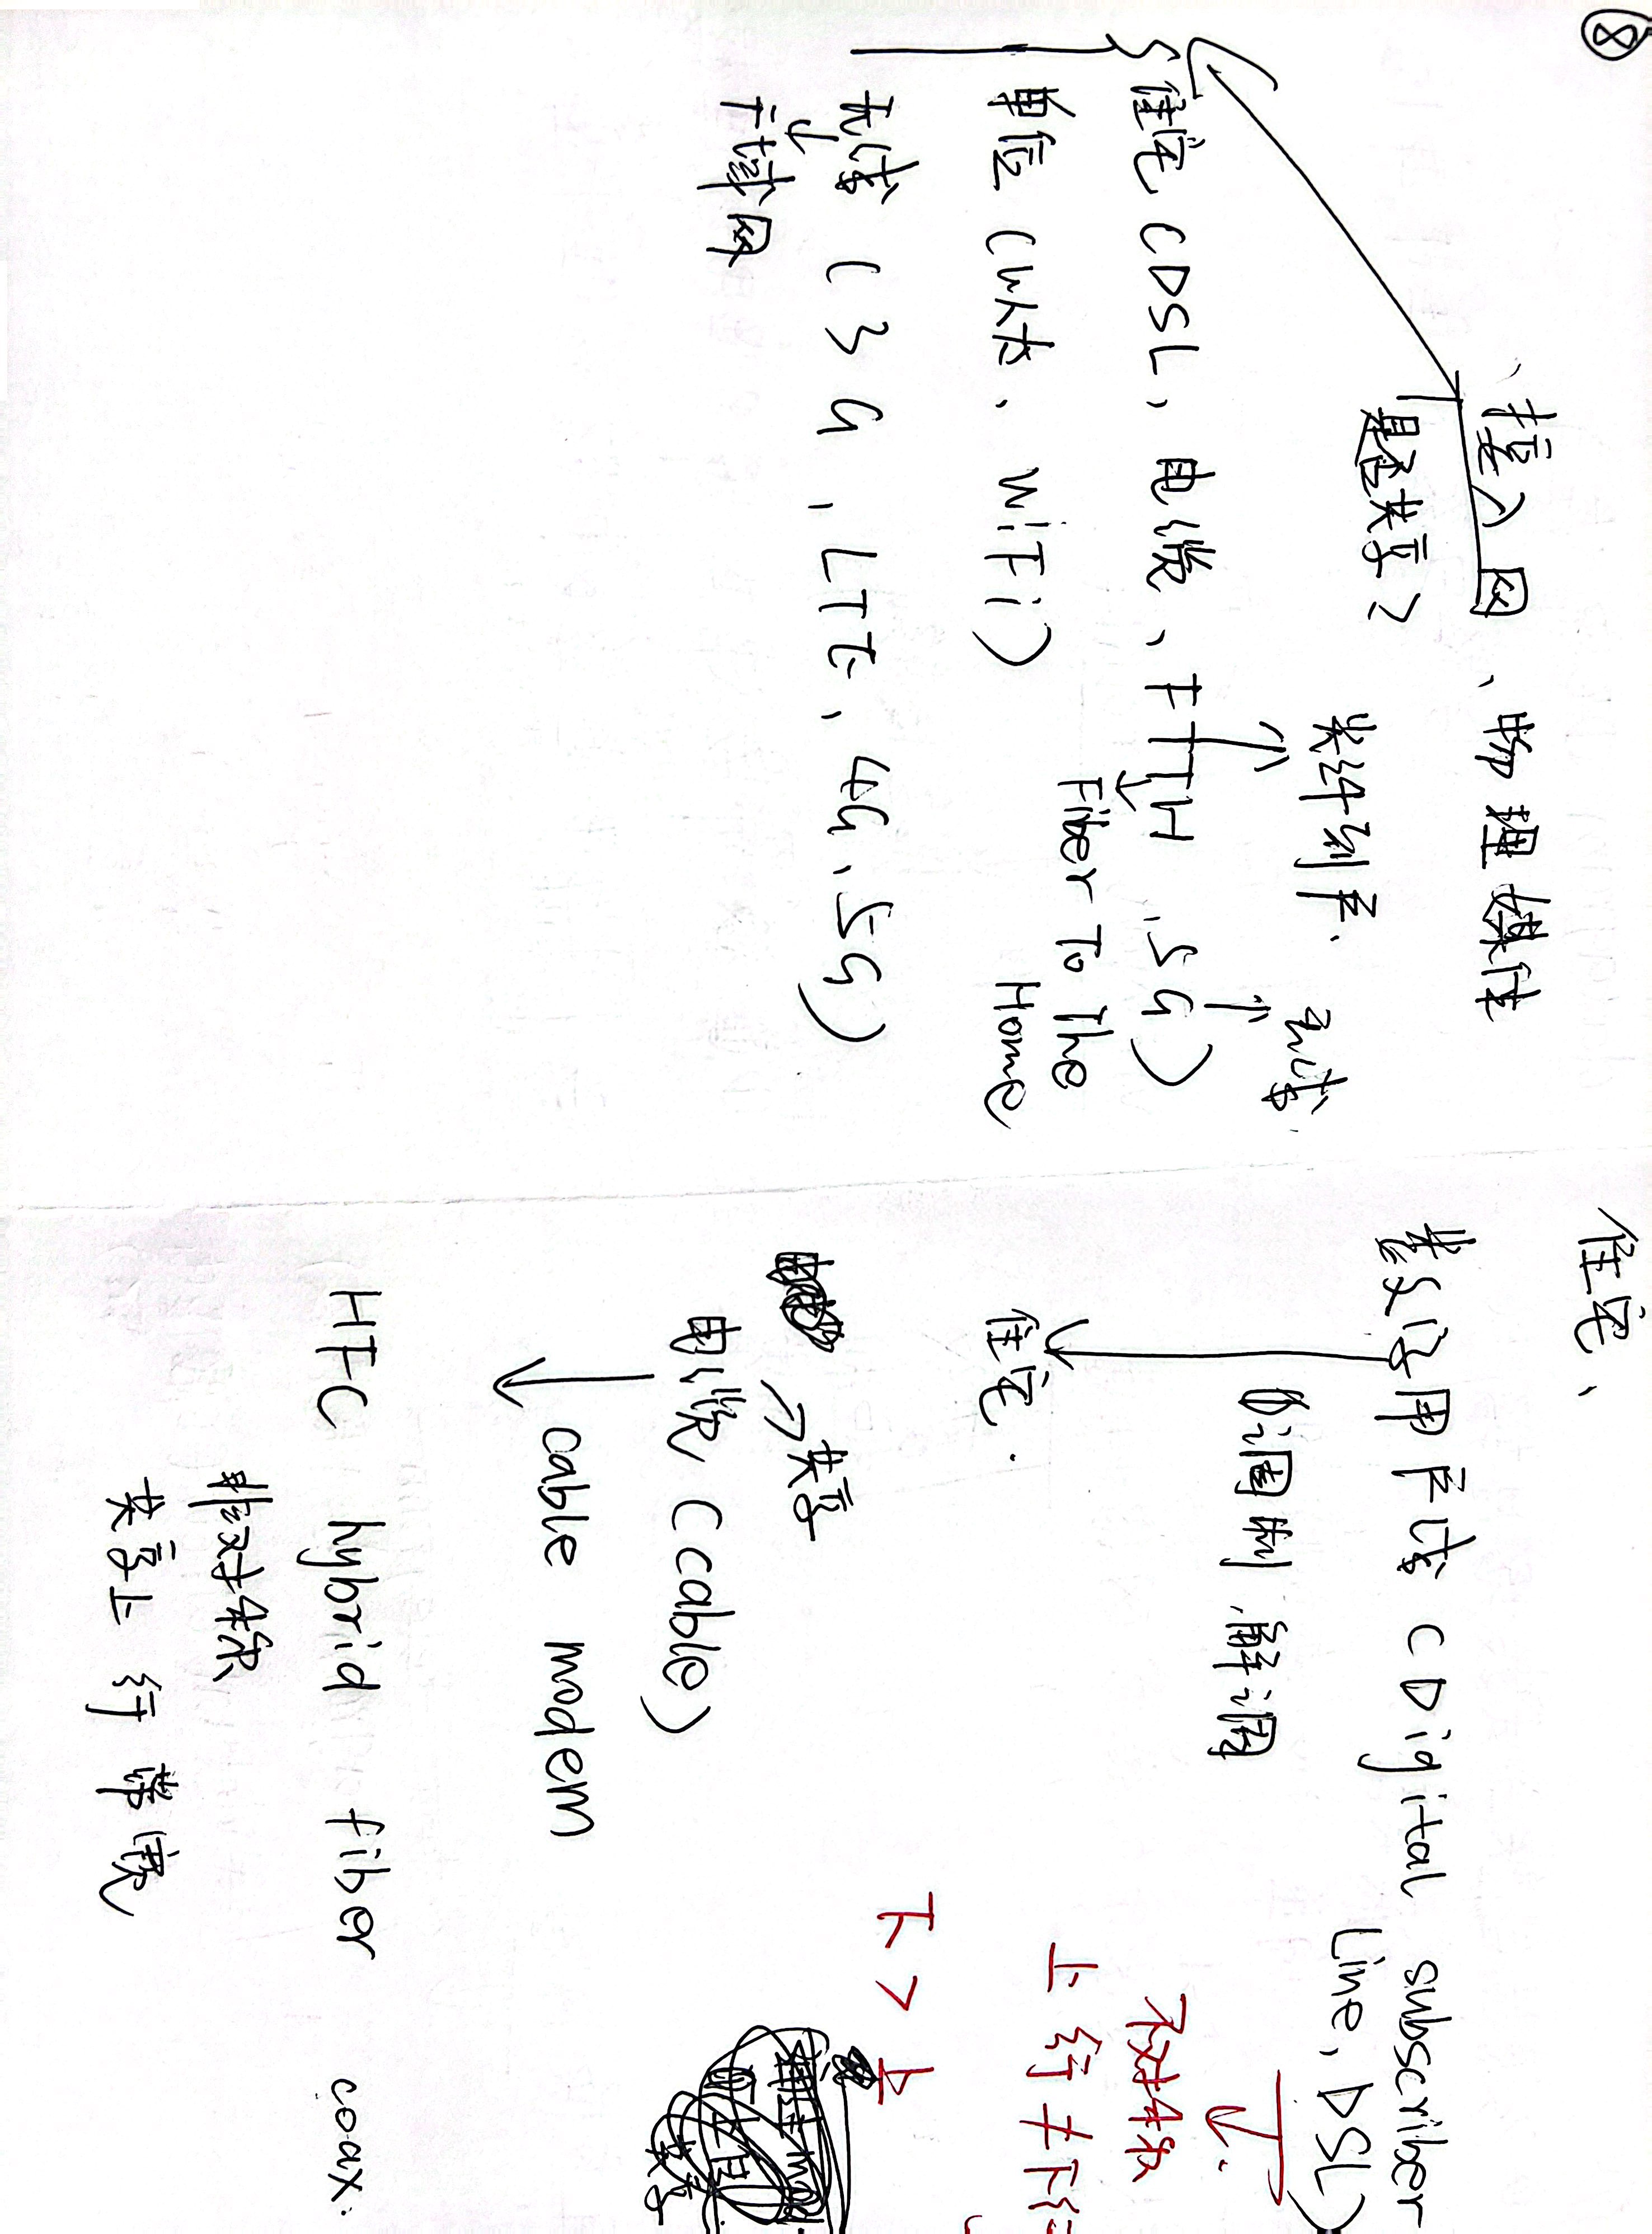 ⑧
、接入网、物理媒体
是否共享?
光纤到户. 无线.
住宅(DSL、电缆、FTTH、5G)
Fiber To The
Home
单位(以太、WiFi)
无线(3G,LTE,4G、5G)
广域网
住宅、
数字用户线(Digital subscriber
Line, DSL)
调制 解调
不对称
住宅.
上行≠下行
下>上
共享
电缆(cable)
cable modem
HFC hybrid fiber coax.
非对称
共享上行带宽